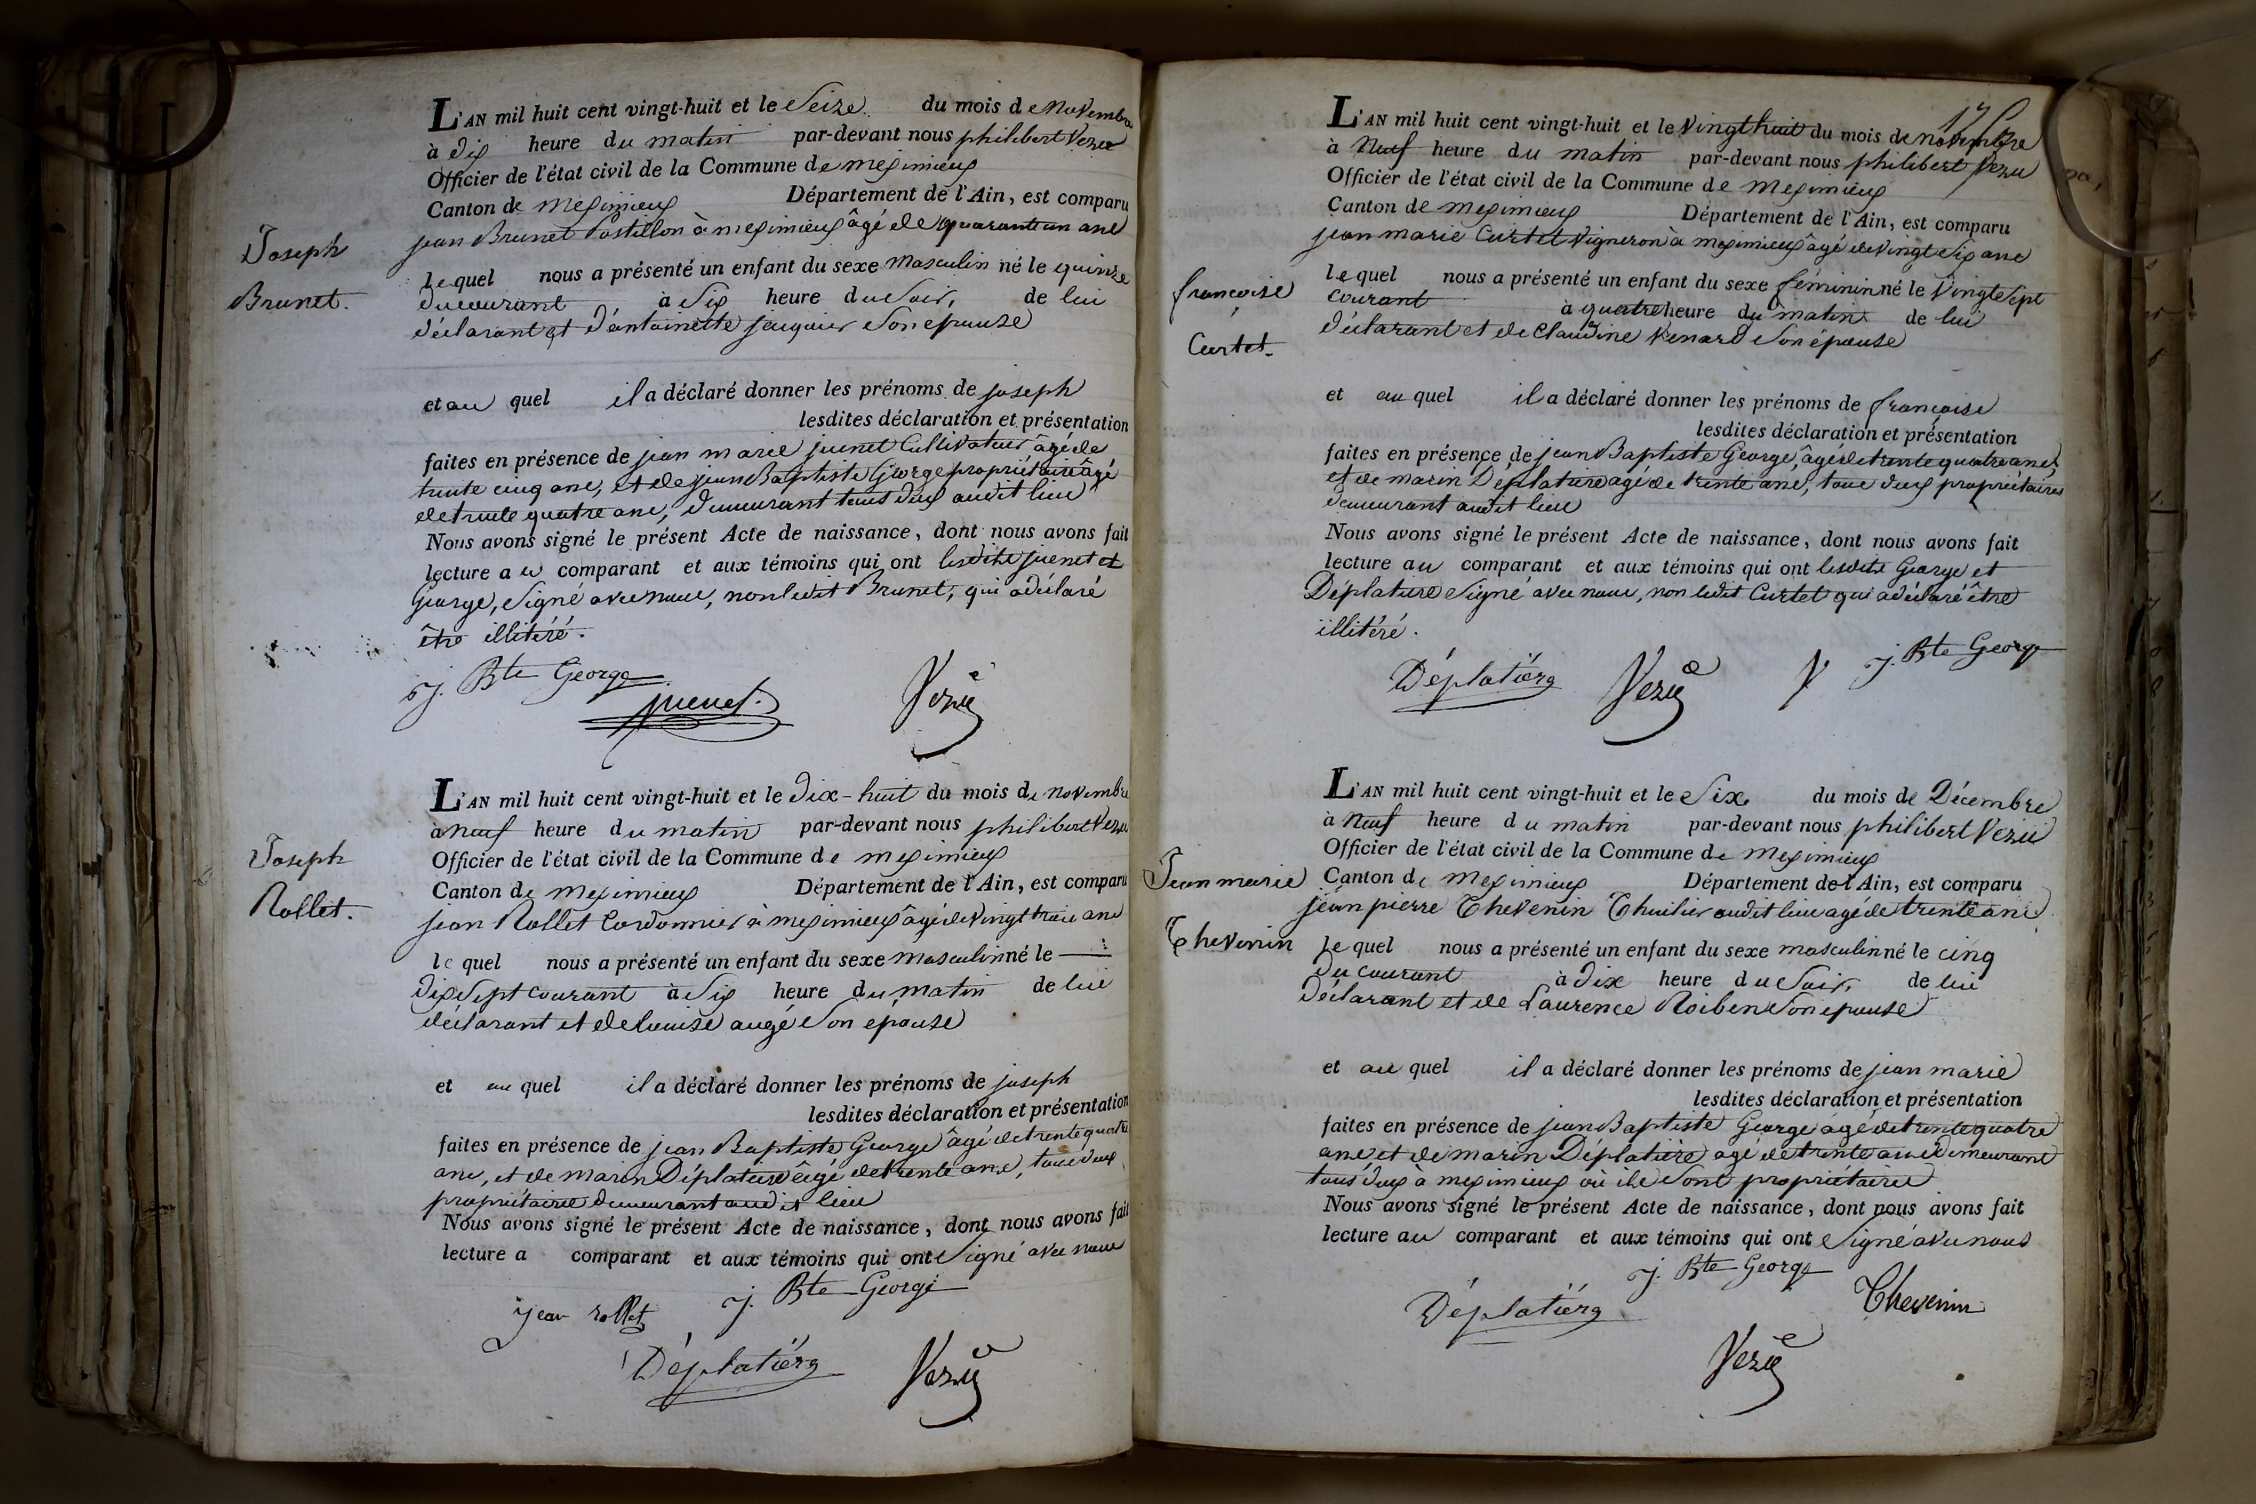 Joseph
Brunet.
L'AN mil huit cent vingt-huit et le Seize du mois de Novembre
à dix heure du matin par-devant nous philibert Vezu
Officier de l'état civil de la Commune de meximieux
Canton de meximieux Département de l'Ain, est comparu
jean Brunet Postillon à meximieux âgé de quarante un ans
lequel nous a présenté un enfant du sexe masculin né le quinze
du courant à Six heure du Soir, de lui
déclarant et d'antoinette jacquier Son épouse
et au quel il a déclaré donner les prénoms de joseph
lesdites déclaration et présentation
faites en présence de jean marie juenet Cultivateur âgé de
trente cinq ans, et de jean Baptiste George propriétaire âgé
de trente quatre ans, demeurant tous deux audit lieu
Nous avons signé le présent Acte de naissance, dont nous avons fait
lecture au comparant et aux témoins qui ont lesdits juenet et
George, Signé avec nous, non ledit Brunet, qui a déclaré
être illitéré.
J. Bte George
juenet.
Vezu
Joseph
Rollet.
L'AN mil huit cent vingt-huit et le Dix-huit du mois de novembre
à neuf heure du matin par-devant nous philibert Vezu
Officier de l'état civil de la Commune de meximieux
Canton de meximieux Département de l'Ain, est comparu
jean Rollet Cordonnier à meximieux âgé de vingt trois ans
lequel nous a présenté un enfant du sexe masculin né le
dix Sept courant à Six heure du matin de lui
déclarant et de louise augé Son épouse
et au quel il a déclaré donner les prénoms de joseph
lesdites déclaration et présentation
faites en présence de jean Baptiste George âgé de trente quatre
ans, et de marin Déplatière âgé de trente ans, tous deux
propriétaires demeurant audit lieu
Nous avons signé le présent Acte de naissance, dont nous avons fait
lecture a comparant et aux témoins qui ont Signé avec nous
jean rollet
J. Bte George
Déplatière
Vezu
L'AN mil huit cent vingt-huit et le Vingt huit du mois de novembre
à Neuf heure du matin par-devant nous philibert Vezu
Officier de l'état civil de la Commune de meximieux
Canton de meximieux Département de l'Ain, est comparu
jean marie Curtet Vigneron à meximieux âgé de vingt Six ans
françoise
Curtet.
lequel nous a présenté un enfant du sexe féminin né le Vingt Sept
courant à quatre heure du matin de lui
déclarant et de Claudine Venard Son épouse
et au quel il a déclaré donner les prénoms de françoise
lesdites déclaration et présentation
faites en présence de jean Baptiste George, âgé de trente quatre ans,
et de marin Déplatière âgé de trente ans, tous deux propriétaires
demeurant audit lieu
Nous avons signé le présent Acte de naissance, dont nous avons fait
lecture au comparant et aux témoins qui ont lesdits George et
Déplatière Signé avec nous, non ledit Curtet qui a déclaré être
illitéré.
Déplatière
Vezu
J. Bte George
L'AN mil huit cent vingt-huit et le Six du mois de Décembre
à Neuf heure du matin par-devant nous philibert Vezu
Officier de l'état civil de la Commune de meximieux
Jean marie
Thevenin
Canton de meximieux Département de l'Ain, est comparu
jean pierre Thevenin Thuilier audit lieu âgé de trente ans
lequel nous a présenté un enfant du sexe masculin né le cinq
du courant à dix heure du Soir, de lui
déclarant et de Laurence Roiben Son épouse
et au quel il a déclaré donner les prénoms de jean marie
lesdites déclaration et présentation
faites en présence de jean Baptiste George âgé de trente quatre
ans et de marin Déplatière âgé de trente ans demeurant
tous deux à meximieux où ils Sont propriétaires
Nous avons signé le présent Acte de naissance, dont nous avons fait
lecture au comparant et aux témoins qui ont Signé avec nous
J. Bte George
Déplatière
Thevenin
Vezu